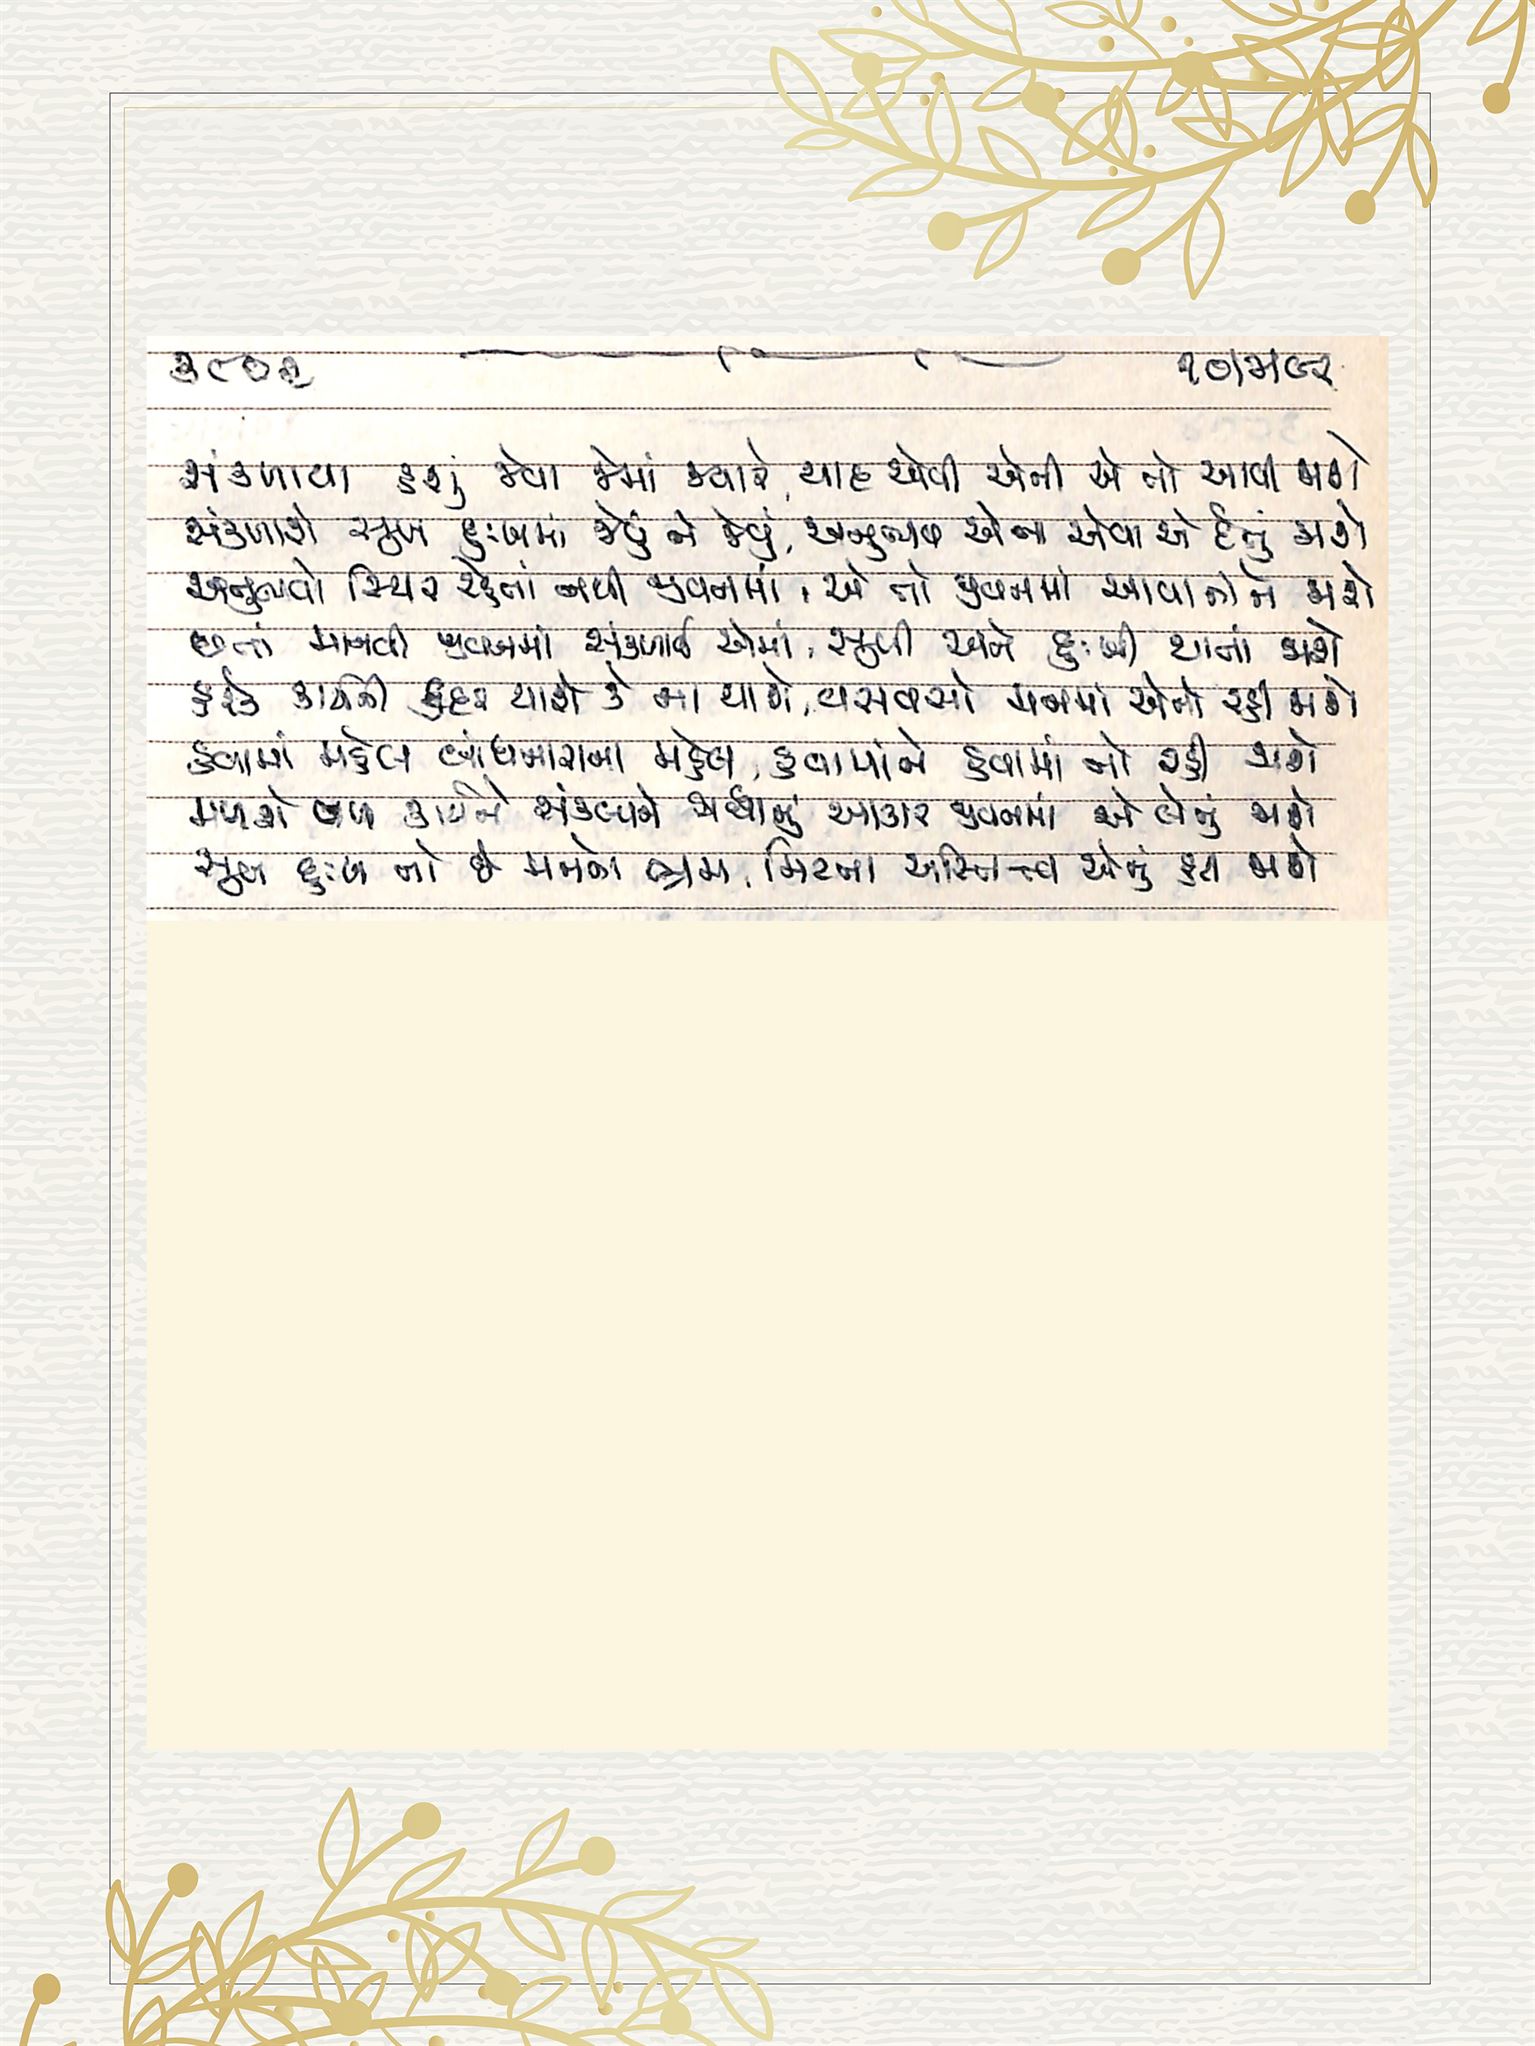 ૩૮૦૨
સંકળાયા હશું જેવા જેમાં જ્યારે, યાદ એવી એની એ તો આવી જાશે
સંકળાશે સુખ દુઃખમાં જેવું ને જેવું, અનુભવ એના એવા એ દેતું જાશે
અનુભવો સ્થિર રહેતાં નથી જીવનમાં, એ તો જીવનમાં આવતો ને જાશે
છતાં માનવી જીવનમાં સંકળાઈ એમાં, સુખી અને દુઃખી થાતાં જાશે
હરેક કાર્યની કદર થાશે કે ના થાશે, વસવસો મનમાં એનો રહી જાશે
હવામાં મહેલ બાંધનારાના મહેલ, હવામાંને હવામાં તો રહી જાશે
મળશે બળ કાર્યને સંકલ્પને શ્રદ્ધાનું આકાર જીવનમાં એ લેતું જાશે
સુખ દુઃખ તો છે મનના ભ્રમ, મિટતા અસ્તિત્વ એનું હટી જાશે